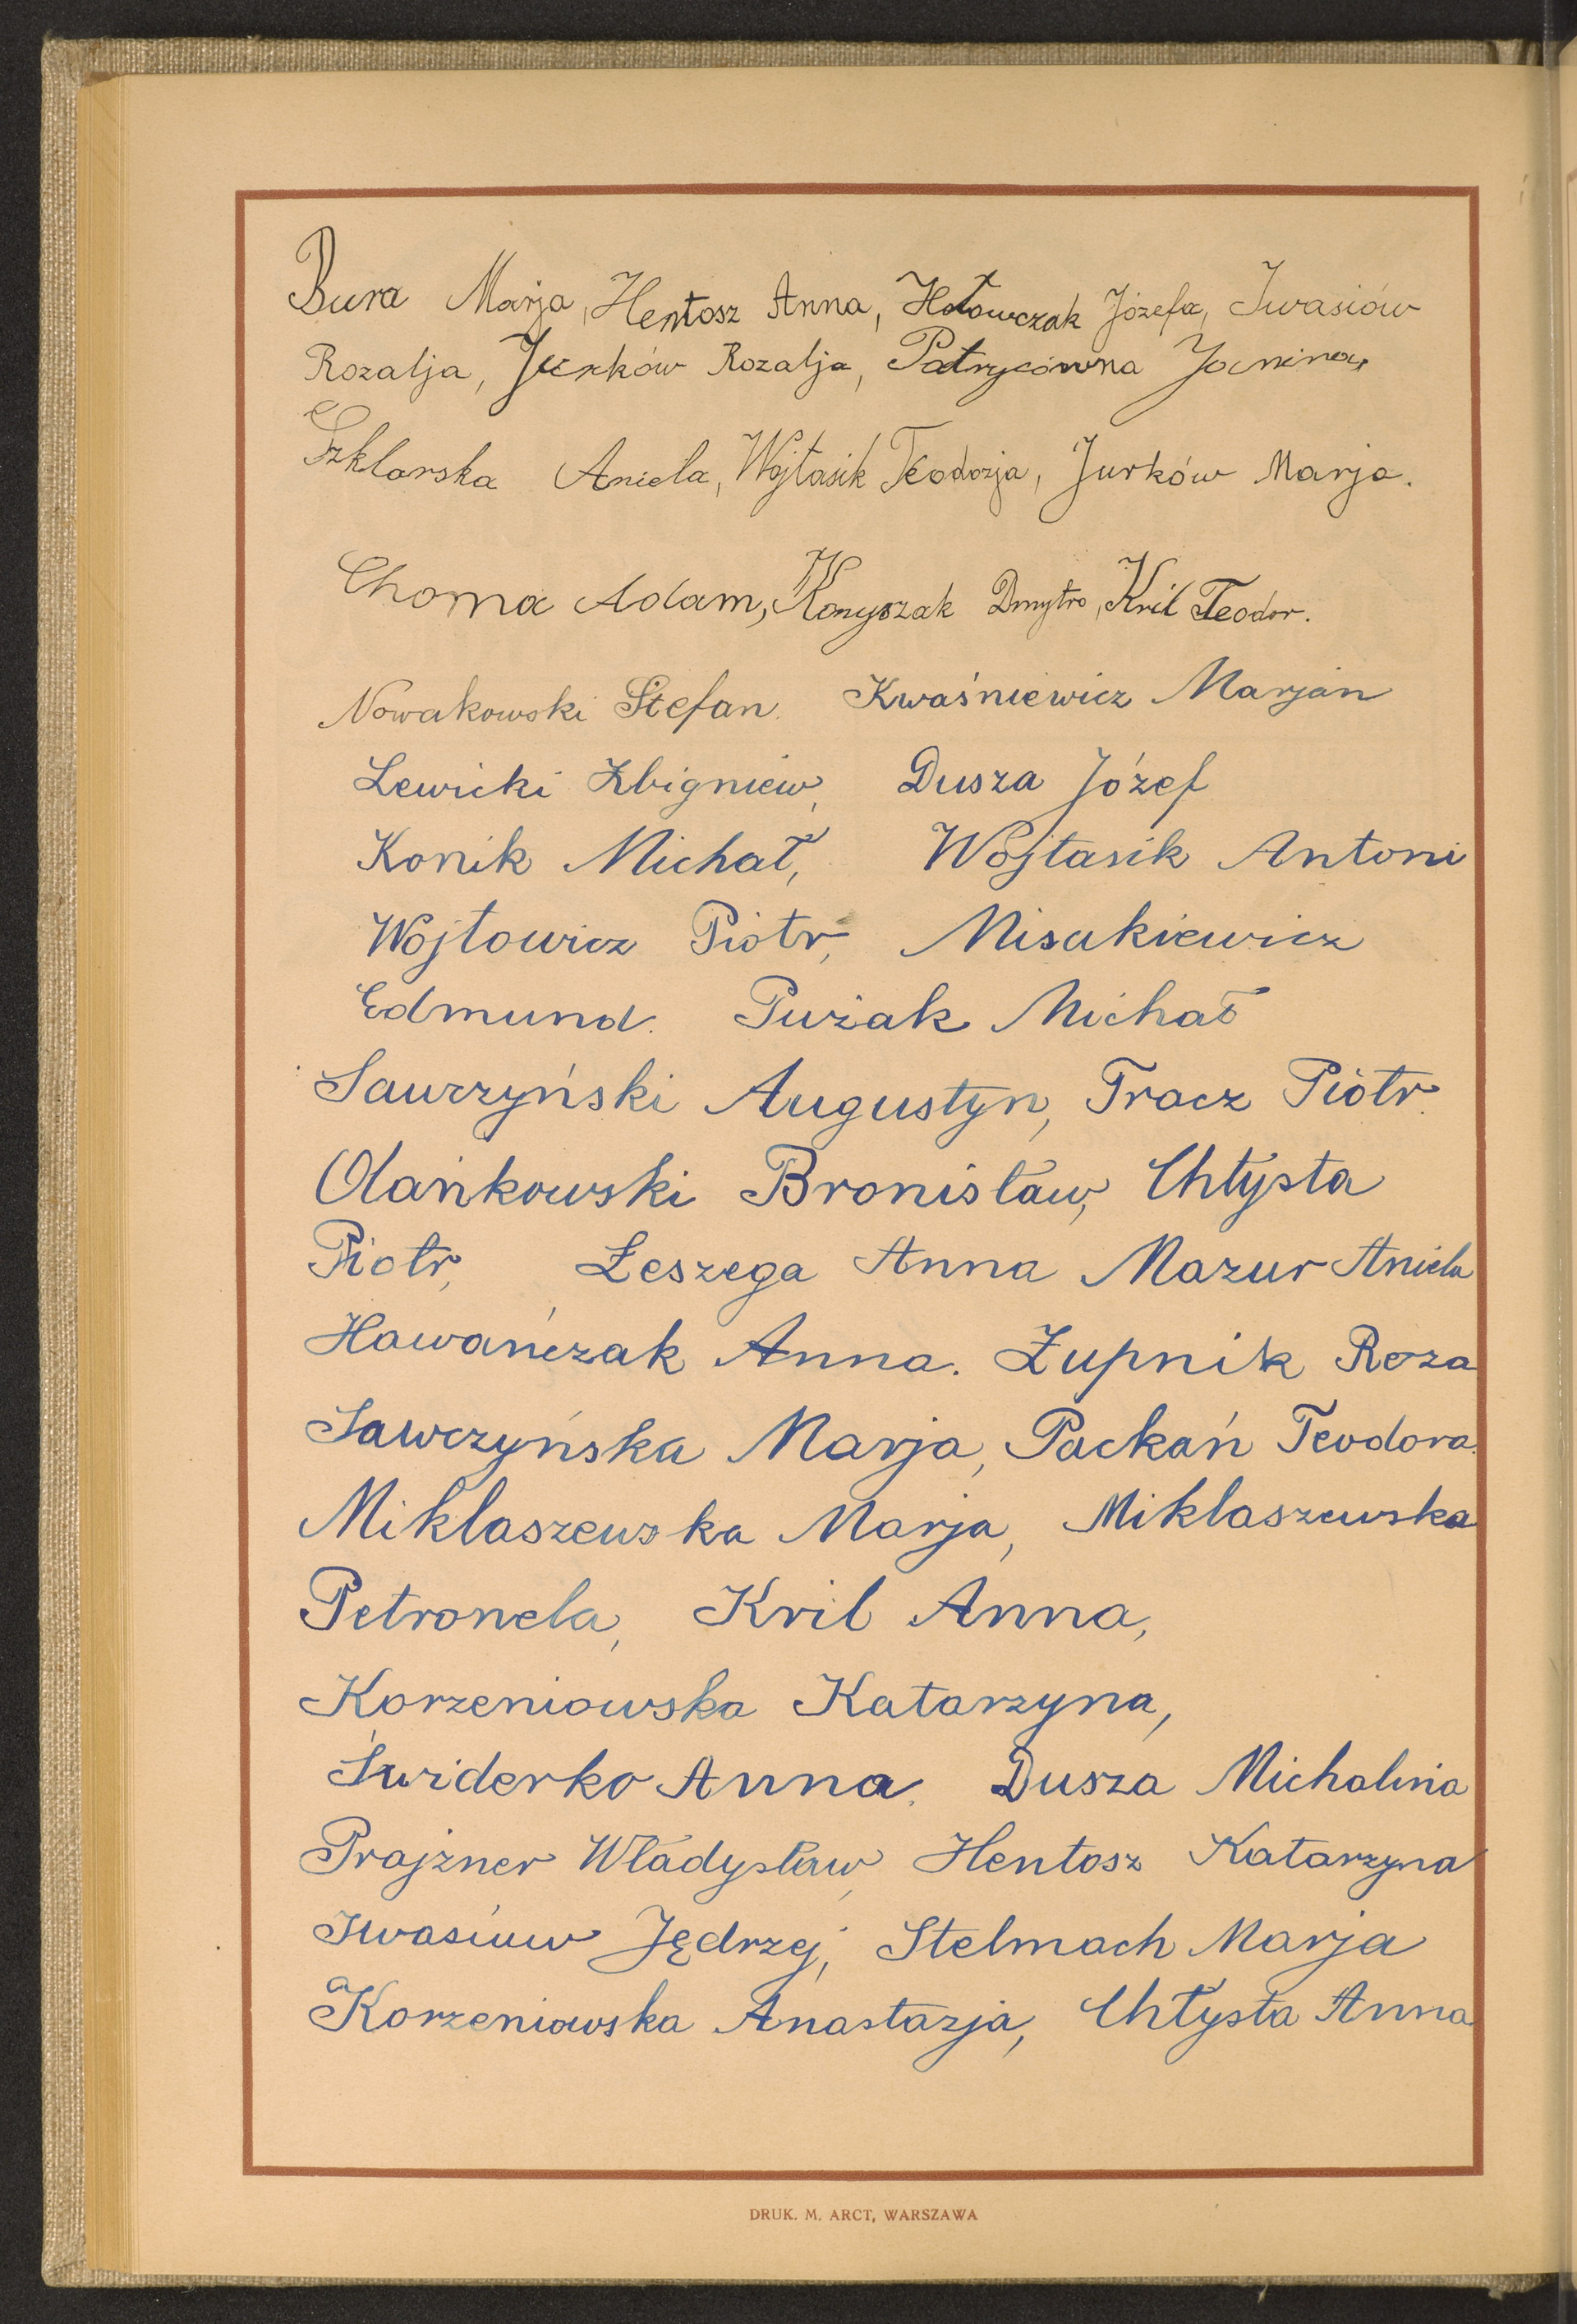 Bura Marja, Hentosz Anna, Hołowczak Józefa, Iwasiów
Rozalja, Jurków Rozalja, Patrycówna Janina,
Szklarska Aniela, Wojtasik Teodozja, Jurków Marja.
Choma Adam, Konyszak Dmytro, Kril Teodor.
Nowakowski Stefan. Kwaśniewicz Marjan
Lewicki Zbigniew, Dusza Józef
Konik Michał, Wojtasik Antoni
Wojtowicz Piotr, Misakiewicz
Edmund. Pużak Michał
Sawczyński Augustyn, Tracz Piotr.
Olańkowski Bronisław, Chłysta
Piotr, Łeszega Anna Mazur Aniela
Hawańczak Anna. Żupnik Roza
Sawczyńska Marja, Packań Teodora.
Miklaszewska Marja, Miklaszewska
Petronela, Kril Anna,
Korzeniowska Katarzyna,
Świderko Anna. Dusza Michalina
Prajzner Władysław, Hentosz Katarzyna
Iwasiuw Jędrzej, Stelmach Marja
Korzeniowska Anastazja, Chłysta Anna
DRUK. M. ARCT, WARSZAWA